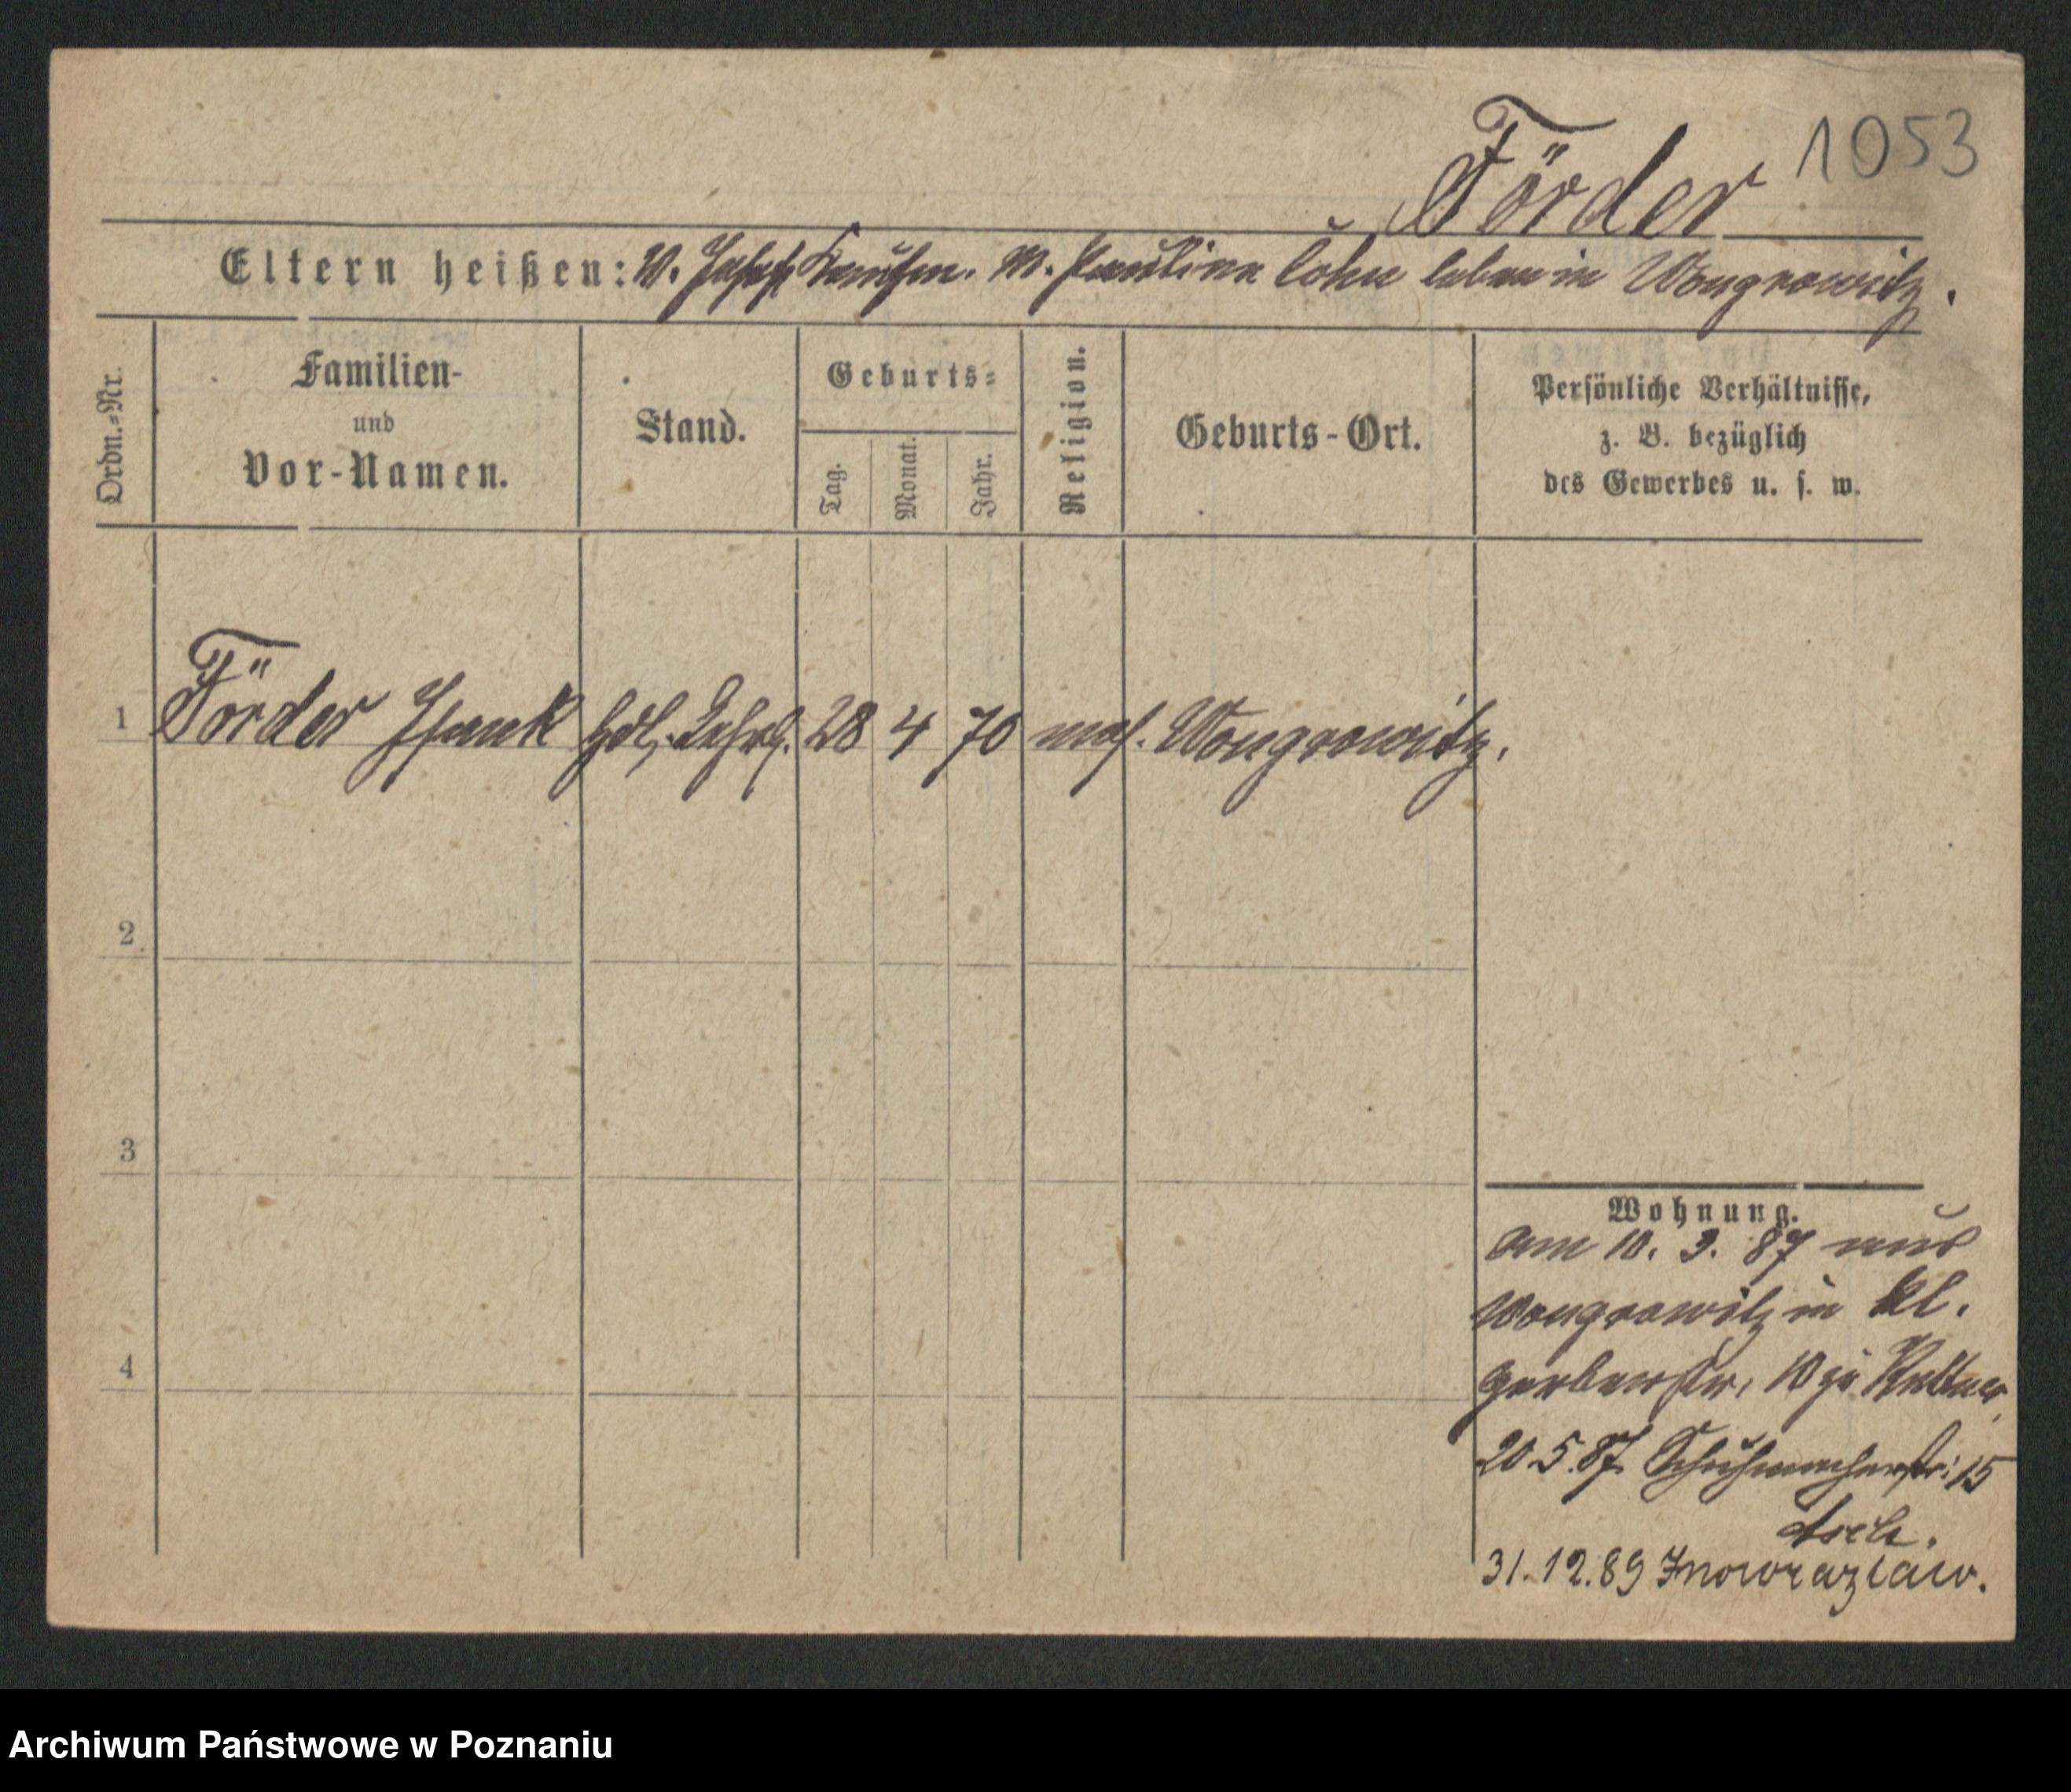 Förder 1053
Eltern heißen: V. Josef Kaufm. M. Pauline Cohn leben in Wongrowitz.
Ordn.-Nr.
Familien-
und
Vor-Namen.
Stand.
Geburts-
Tag.
Monat.
Jahr.
Religion.
Geburts-Ort.
Persönliche Verhältnisse,
z. B. bezüglich
des Gewerbes u. s. w.
1 Förder Isaak Hdl. Lehrl. 28 4 70 mos. Wongrowitz.
2
3
4
Wohnung.
am 10. 3. 87 aus
Wongrowitz in kl.
Gerberstr. 10 zu
20.5.87. Schuhmacherstr: 15
31.12.89 Inowrazlaw.
Archiwum Państwowe w Poznaniu